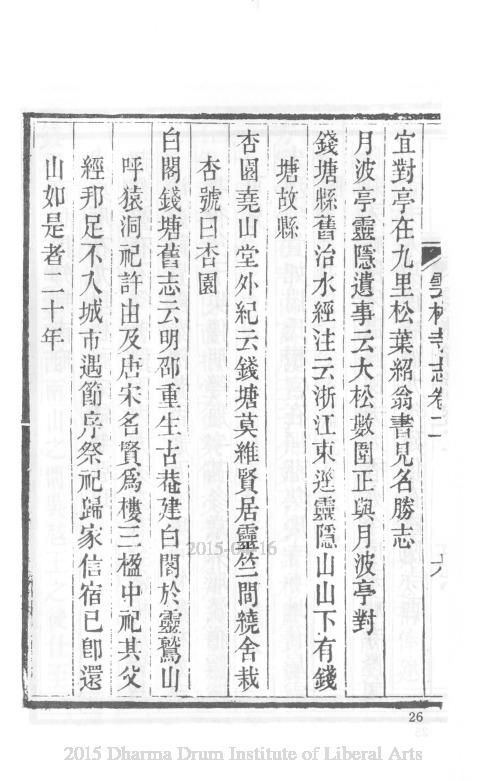 雲林寺志卷二
六
宜對亭在九里松葉紹翁書見名勝志
月波亭靈隱遺事云大松數圍正與月波亭對
錢塘縣舊治水經注云浙江東逕靈隱山山下有錢
塘故縣
杏園堯山堂外紀云錢塘莫維賢居靈竺間繞舍栽
杏號曰杏園
白閣錢塘舊志云明邵重生古菴建白閣於靈鷲山
呼猿洞祀許由及唐宋名賢爲樓三楹中祀其父
經邦足不入城市遇節序祭祀歸家信宿已卽還
山如是者二十年
26
2015 Dharma Drum Institute of Liberal Arts